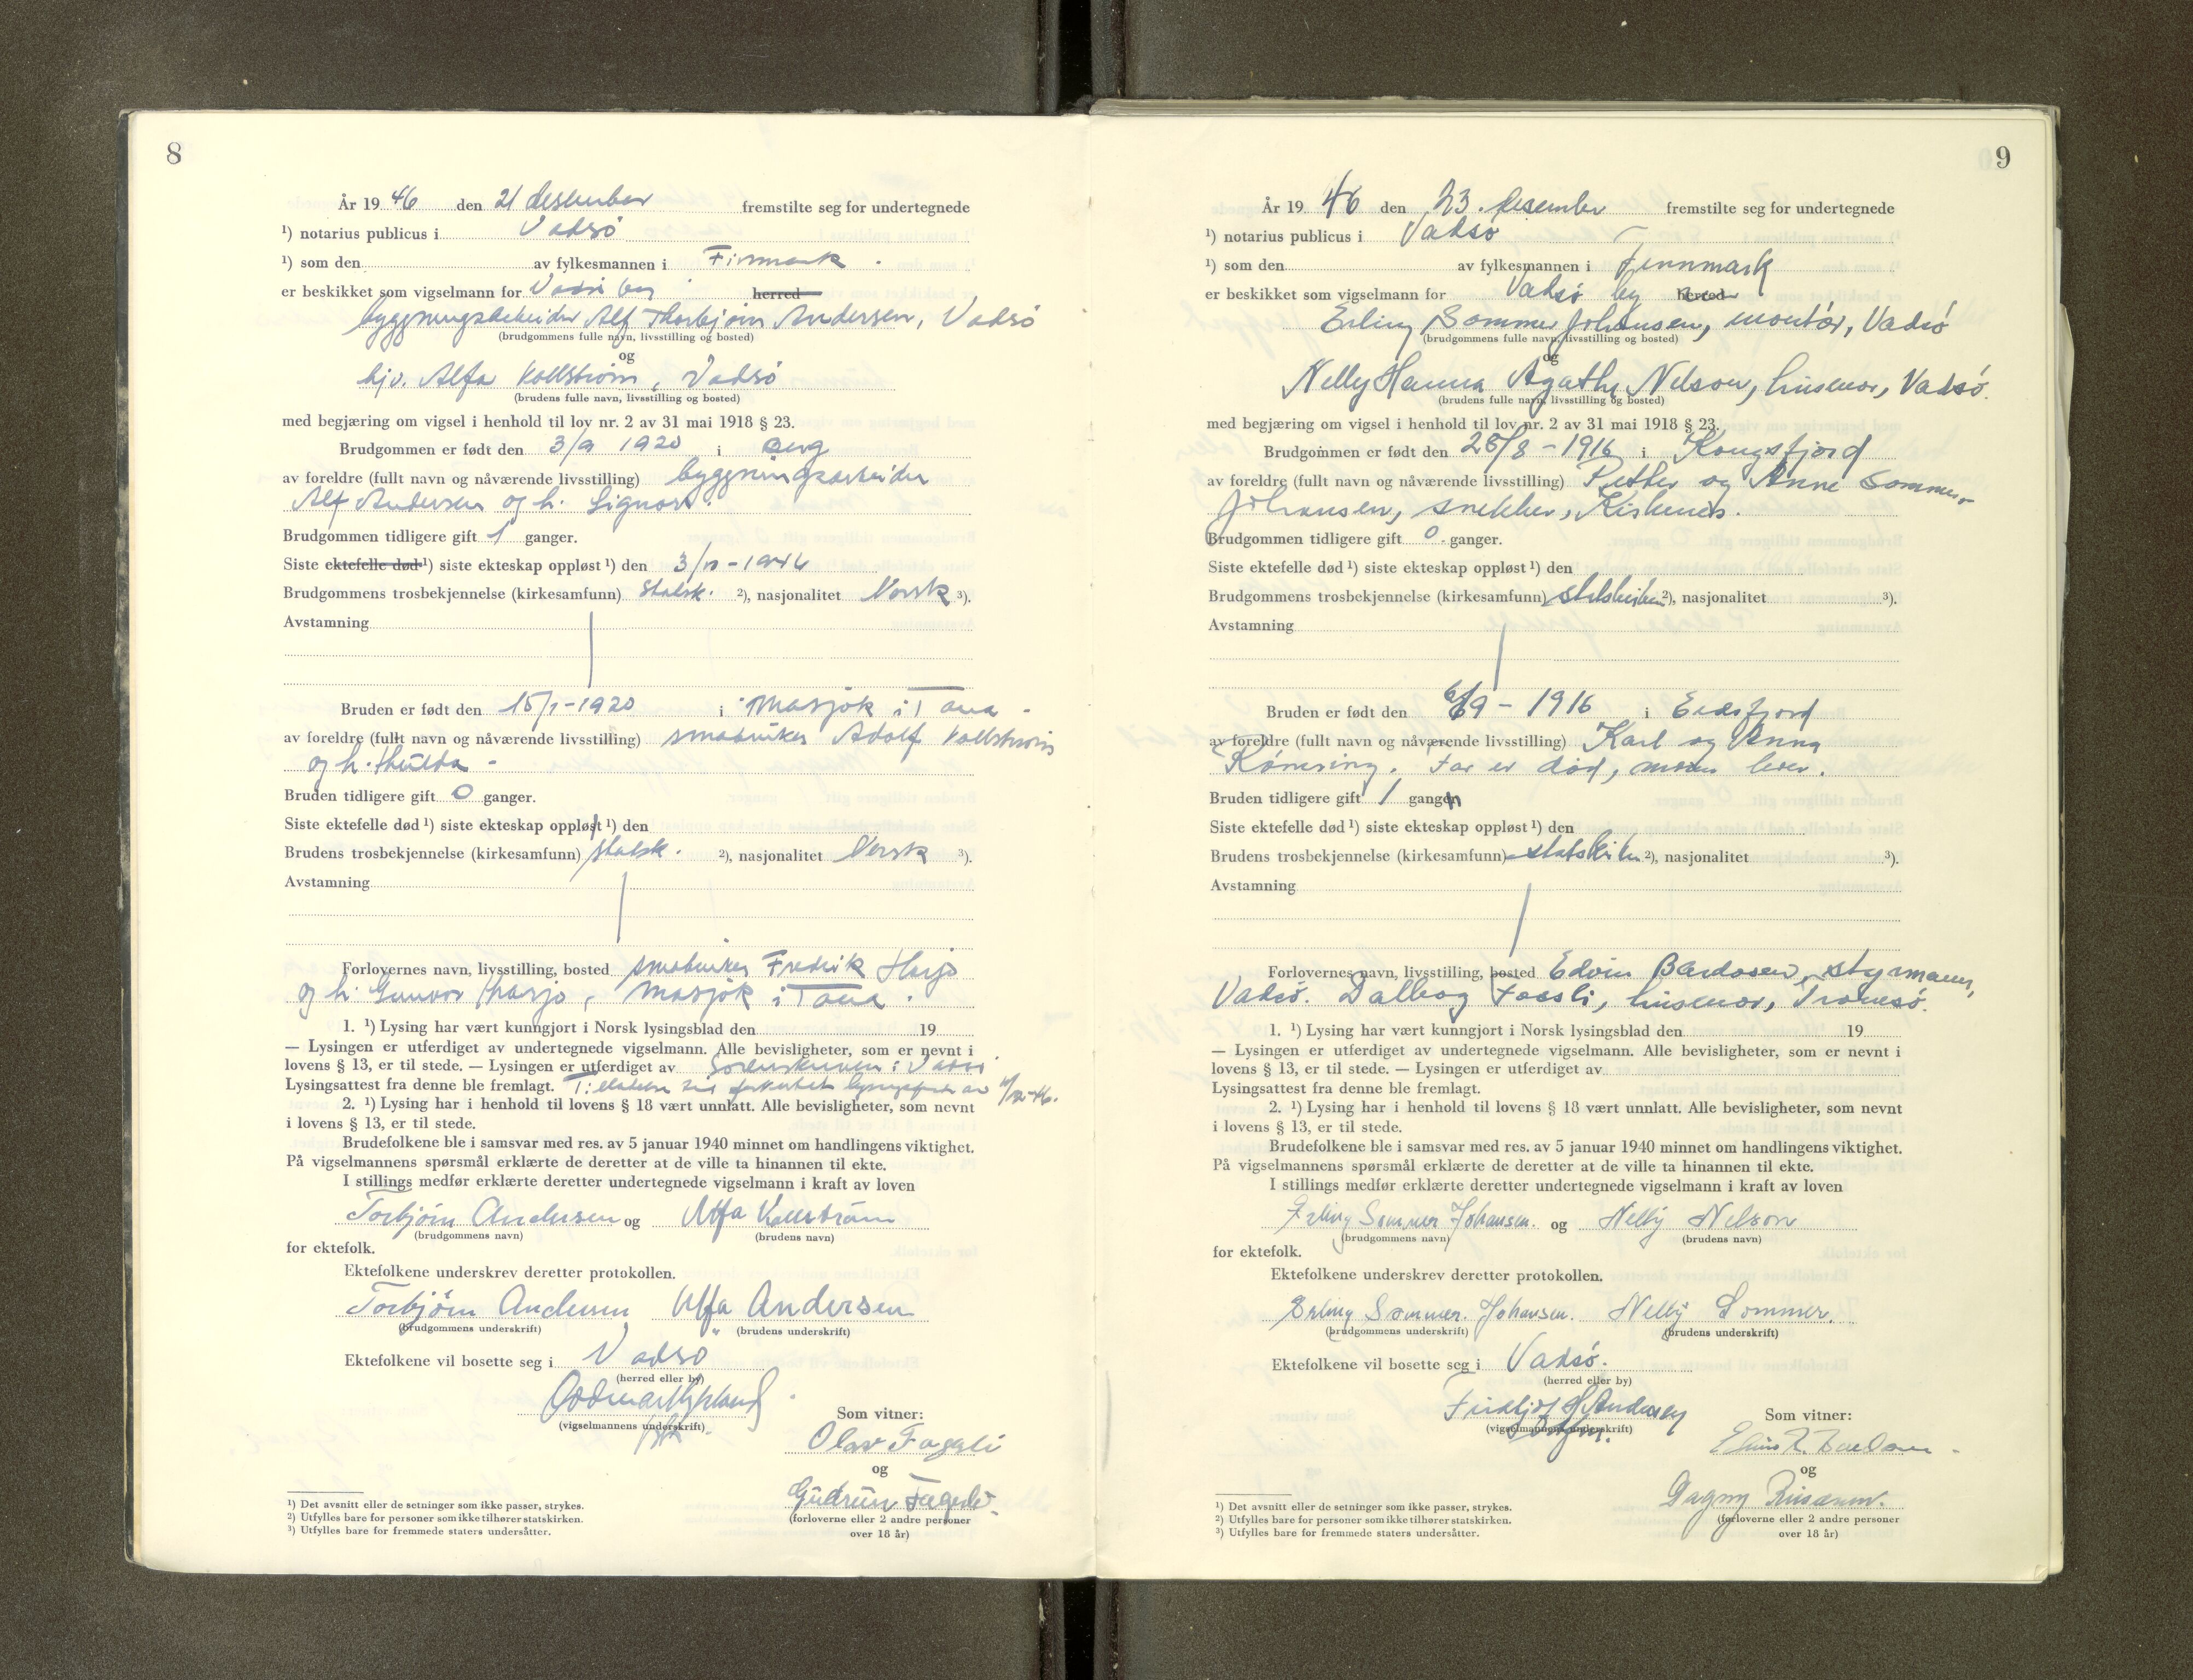 8
År 19 46 den 21 desember fremstilte seg for undertegnede
¹) notarius publicus i Vadsö
¹) som den av fylkesmannen i Finmark .
er beskikket som vigselmann for Vadsö by herred
byggningsarbeider Alf Thorbjörn Andersen, Vadsö
(brudgommens fulle navn, livsstilling og bosted)
og
hjv. Alfa Kollström, Vadsö
(brudens fulle navn, livsstilling og bosted)
med begjæring om vigsel i henhold til lov nr. 2 av 31 mai 1918 § 23.
Brudgommen er født den 3/9 1920 i Berg
av foreldre (fullt navn og nåværende livsstilling) byggningsarbeider
Alf Andersen og h. Signora.
Brudgommen tidligere gift 1 ganger.
Siste ektefelle død ¹) siste ekteskap oppløst ¹) den
Brudgommens trosbekjennelse (kirkesamfunn) Statsk. ²), nasjonalitet Norsk ³).
Avstamning
Bruden er født den 15/1-1920 i Masjok i Tana -
av foreldre (fullt navn og nåværende livsstilling) småbruker Adolf Kollström
og h. Hulda -
Bruden tidligere gift 0 ganger.
Siste ektefelle død ¹) siste ekteskap oppløst ¹) den
Brudens trosbekjennelse (kirkesamfunn) Statsk. ²), nasjonalitet Norsk ³).
Avstamning
Forlovernes navn, livsstilling, bosted småbruker Fredrik Harjo
og h. Gunvor Harjo, Masjok i Tana .
1. ¹) Lysing har vært kunngjort i Norsk lysingsblad den 19
— Lysingen er utferdiget av undertegnede vigselmann. Alle bevisligheter, som er nevnt i
lovens § 13, er til stede. — Lysingen er utferdiget av Sorenskriveren i Vadsö
Lysingsattest fra denne ble fremlagt.
2. ¹) Lysing har i henhold til lovens § 18 vært unnlatt. Alle bevisligheter, som nevnt
i lovens § 13, er til stede.
Brudefolkene ble i samsvar med res. av 5 januar 1940 minnet om handlingens viktighet.
På vigselmannens spørsmål erklærte de deretter at de ville ta hinannen til ekte.
I stillings medfør erklærte deretter undertegnede vigselmann i kraft av loven
Torbjörn Andersen og Alfa Kollström
(brudgommens navn) (brudens navn)
for ektefolk.
Ektefolkene underskrev deretter protokollen.
Torbjörn Andersen Alfa Andersen
(brudgommens underskrift) (brudens underskrift)
Ektefolkene vil bosette seg i Vadsö
(herred eller by)
(vigselmannens underskrift)
Som vitner:
Olav Fagerli
og
Gudrun Fagerli
(forloverne eller 2 andre personer
over 18 år)
¹) Det avsnitt eller de setninger som ikke passer, strykes.
²) Utfylles bare for personer som ikke tilhører statskirken.
³) Utfylles bare for fremmede staters undersåtter.
9
År 19 46 den 23. desember fremstilte seg for undertegnede
¹) notarius publicus i Vadsö
¹) som den av fylkesmannen i Finnmark
er beskikket som vigselmann for Vadsö by herred
Erling Sommer Johansen, montör, Vadsö
(brudgommens fulle navn, livsstilling og bosted)
og
Nelly Hanna Agathe Nelson, husmor, Vadsö.
(brudens fulle navn, livsstilling og bosted)
med begjæring om vigsel i henhold til lov nr. 2 av 31 mai 1918 § 23.
Brudgommen er født den 28/8 - 1916 i Kongsfjord
av foreldre (fullt navn og nåværende livsstilling) Petter og Anne Sommer
Johansen, snekker, Kirkenes.
Brudgommen tidligere gift 0. ganger.
Siste ektefelle død ¹) siste ekteskap oppløst ¹) den
Brudgommens trosbekjennelse (kirkesamfunn) statskirken ²), nasjonalitet ³).
Avstamning
Bruden er født den 6/9 - 1916 i Eidsfjord
av foreldre (fullt navn og nåværende livsstilling) Karl og Anna
Far er död, moren lever.
Bruden tidligere gift 1 gang
Siste ektefelle død ¹) siste ekteskap oppløst ¹) den
Brudens trosbekjennelse (kirkesamfunn) statskirken ²), nasjonalitet ³).
Avstamning
Forlovernes navn, livsstilling, bosted Edvin Bardosen, styrmann,
Vadsö. Dalbog Fossli, husmor, Tromsö.
1. ¹) Lysing har vært kunngjort i Norsk lysingsblad den 19
— Lysingen er utferdiget av undertegnede vigselmann. Alle bevisligheter, som er nevnt i
lovens § 13, er til stede. — Lysingen er utferdiget av
Lysingsattest fra denne ble fremlagt.
2. ¹) Lysing har i henhold til lovens § 18 vært unnlatt. Alle bevisligheter, som nevnt
i lovens § 13, er til stede.
Brudefolkene ble i samsvar med res. av 5 januar 1940 minnet om handlingens viktighet.
På vigselmannens spørsmål erklærte de deretter at de ville ta hinannen til ekte.
I stillings medfør erklærte deretter undertegnede vigselmann i kraft av loven
Erling Sommer Johansen. og Nelly Nelson
(brudgommens navn) (brudens navn)
for ektefolk.
Ektefolkene underskrev deretter protokollen.
Erling Sommer. Johansen. Nelly Sommer.
(brudgommens underskrift) (brudens underskrift)
Ektefolkene vil bosette seg i Vadsö.
(herred eller by)
Fridtjof H Andersen
(vigselmannens underskrift)
Som vitner:
og
Dagny
(forloverne eller 2 andre personer
over 18 år)
¹) Det avsnitt eller de setninger som ikke passer, strykes.
²) Utfylles bare for personer som ikke tilhører statskirken.
³) Utfylles bare for fremmede staters undersåtter.